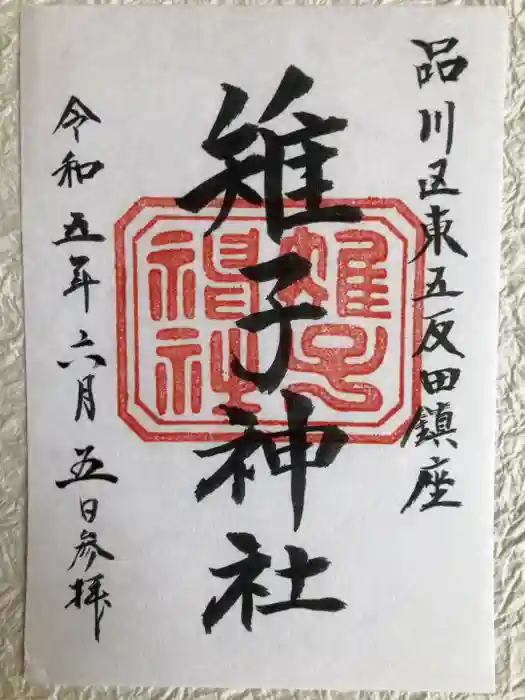 品川区東五反田鎮座
雉子神社
雉子
神社
令和五年六月五日参拝